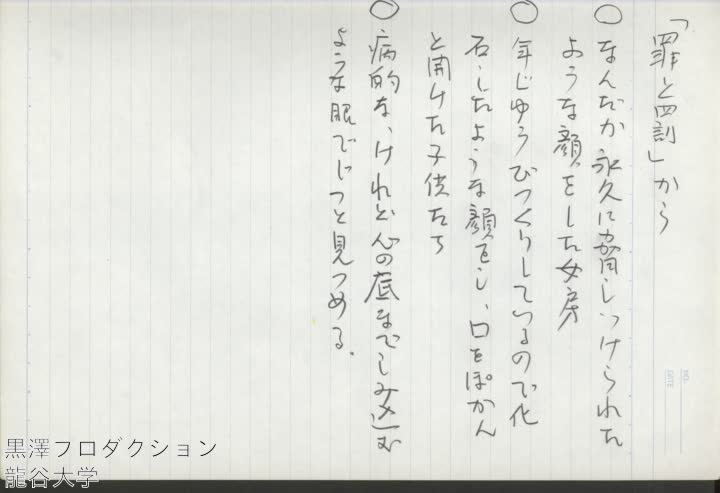 「罪と罰」から
○なんだか永久に脅しつけられた
ような顔をした女房
○年じゆうびつくりしているので化
石したような顔をし、口をぽかん
と開けた子供たち
○病的な、けれど心の底までしみ込む
ような眼でじつと見つめる.
NO.
DATE
黒澤プロダクション
龍谷大学